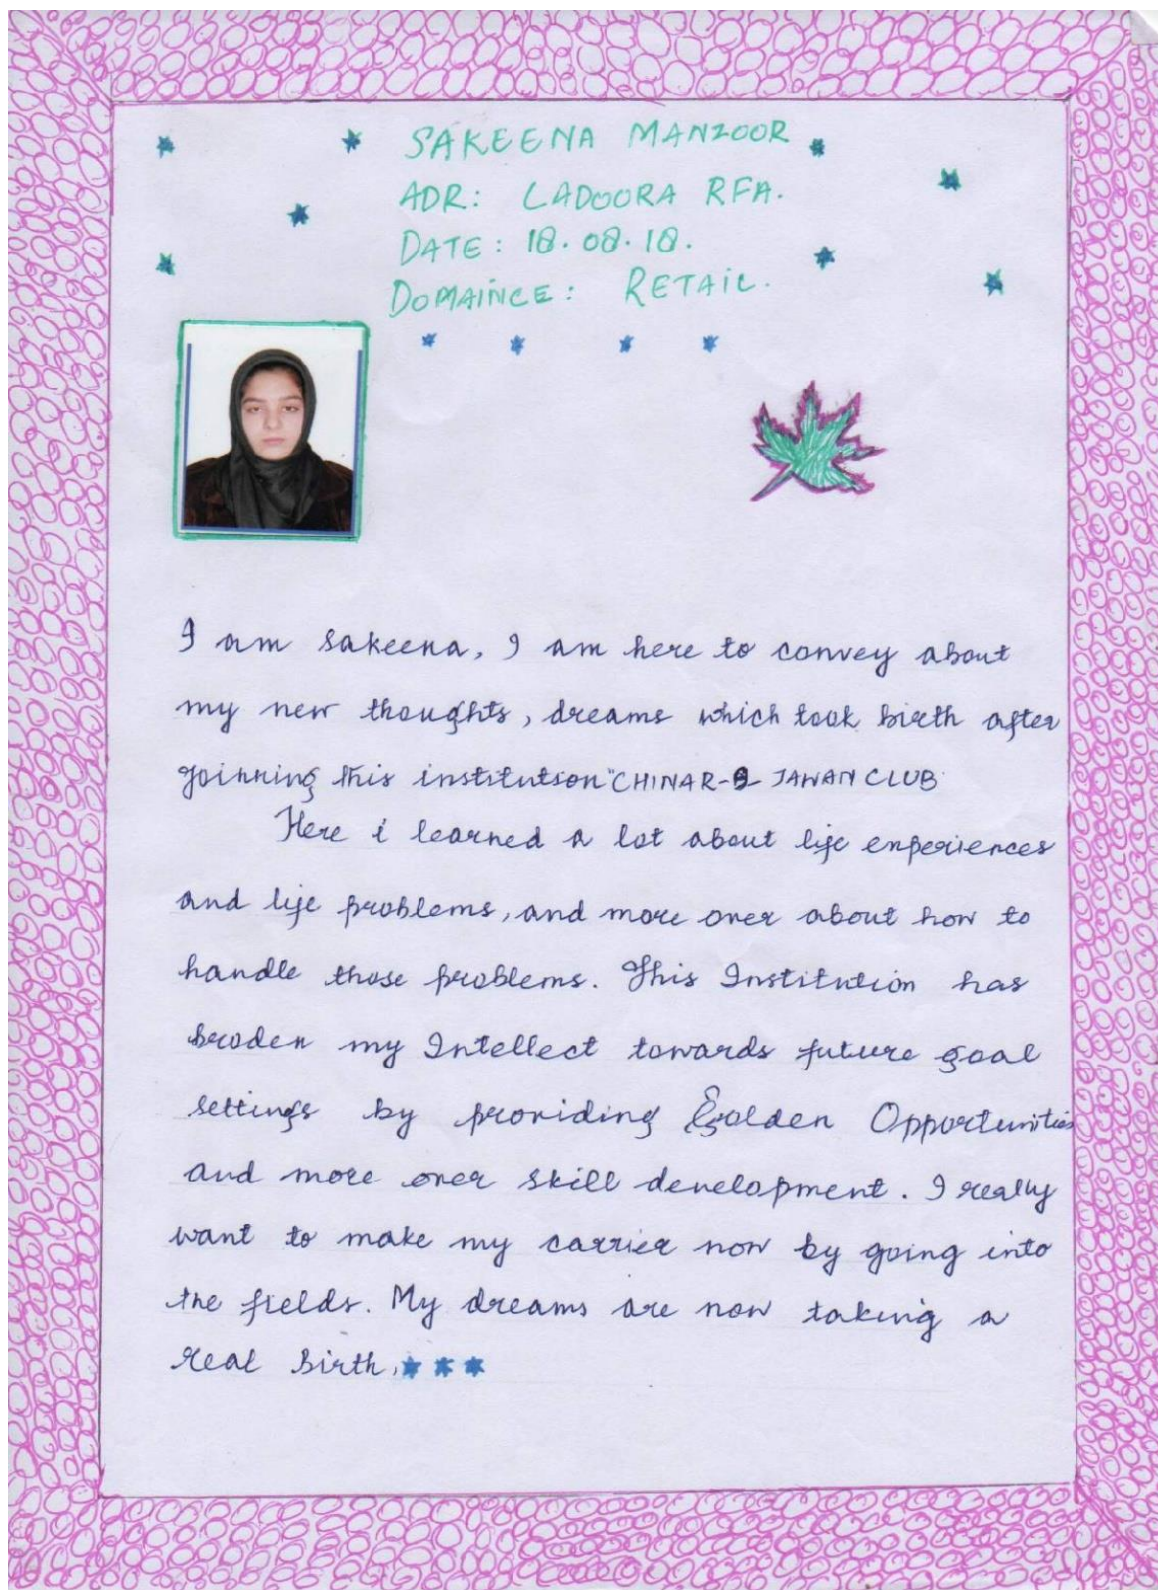 SAKEENA MANZOOR
ADR: LADOORA RFA.
DATE: 18.08.18.
DOMAINCE: RETAIL.
I am Sakeena, I am here to convey about
my new thoughts, dreams which took birth after
joinning this institution "CHINAR-9- JAWAN CLUB
Here i learned a lot about life experiences
and life problems, and more over about how to
handle those problems. This Institution has
broden my Intellect towards future goal
settings by providing Golden Opportunities
and more over skill development. I really
want to make my carrier now by going into
the fields. My dreams are now taking a
real birth.